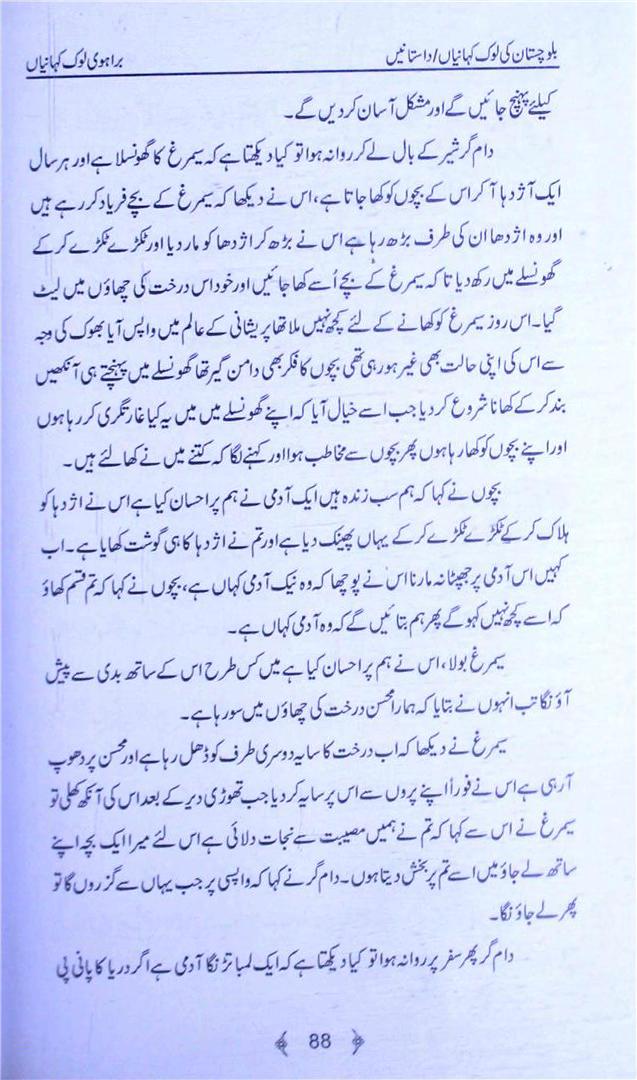 بلوچستان کی لوک کہانیاں/داستانیں
براہوی لوک کہانیاں
کیلئے پہنچ جائیں گے اور مشکل آسان کر دیں گے۔
دام گر شیر کے بال لے کر روانہ ہوا تو کیا دیکھتا ہے کہ سیمرغ کا گھونسلا ہے اور ہر سال
ایک آژدہا آ کر اس کے بچوں کو کھا جاتا ہے، اس نے دیکھا کہ سیمرغ کے بچے فریاد کر رہے ہیں
اور وہ اژدھا ان کی طرف بڑھ رہا ہے اس نے بڑھ کر اژدھا کو مار دیا اور ٹکڑے ٹکڑے کر کے
گھونسلے میں رکھ دیا تا کہ سیمرغ کے بچے اُسے کھا جائیں اور خود اس درخت کی چھاؤں میں لیٹ
گیا۔ اس روز سیمرغ کو کھانے کے لئے کچھ نہیں ملا تھا پریشانی کے عالم میں واپس آیا بھوک کی وجہ
سے اس کی اپنی حالت بھی غیر ہو رہی تھی بچوں کا فکر بھی دامن گیر تھا گھونسلے میں پہنچتے ہی آنکھیں
بند کر کے کھانا شروع کر دیا جب اسے خیال آیا کہ اپنے گھونسلے میں میں یہ کیا غارتگری کر رہا ہوں
اور اپنے بچوں کو کھا رہا ہوں پھر بچوں سے مخاطب ہوا اور کہنے لگا کہ کتنے میں نے کھا لئے ہیں۔
بچوں نے کہا کہ ہم سب زندہ ہیں ایک آدمی نے ہم پر احسان کیا ہے اس نے اژدہا کو
ہلاک کر کے ٹکڑے ٹکڑے کر کے یہاں پھینک دیا ہے اور تم نے اژدہا کا ہی گوشت کھایا ہے۔ اب
کہیں اس آدمی پر جھپٹا نہ مارنا اس نے پوچھا کہ وہ نیک آدمی کہاں ہے، بچوں نے کہا کہ تم قسم کھاؤ
کہ اسے کچھ نہیں کہو گے پھر ہم بتائیں گے کہ وہ آدمی کہاں ہے۔
سیمرغ بولا، اس نے ہم پر احسان کیا ہے میں کس طرح اس کے ساتھ بدی سے پیش
آؤنگا تب انہوں نے بتایا کہ ہمارا محسن درخت کی چھاؤں میں سو رہا ہے۔
سیمرغ نے دیکھا کہ اب درخت کا سایہ دوسری طرف کو ڈھل رہا ہے اور محسن پر دھوپ
آ رہی ہے اس نے فوراً اپنے پروں سے اس پر سایہ کر دیا جب تھوڑی دیر کے بعد اس کی آنکھ کھلی تو
سیمرغ نے اس سے کہا کہ تم نے ہمیں مصیبت سے نجات دلائی ہے اس لئے میرا ایک بچہ اپنے
ساتھ لے جاؤ میں اسے تم پر بخش دیتا ہوں۔ دام گر نے کہا کہ واپسی پر جب یہاں سے گزروں گا تو
پھر لے جاؤنگا۔
دام گر پھر سفر پر روانہ ہوا تو کیا دیکھتا ہے کہ ایک لمبا تڑنگا آدمی ہے اگر دریا کا پانی پی
88